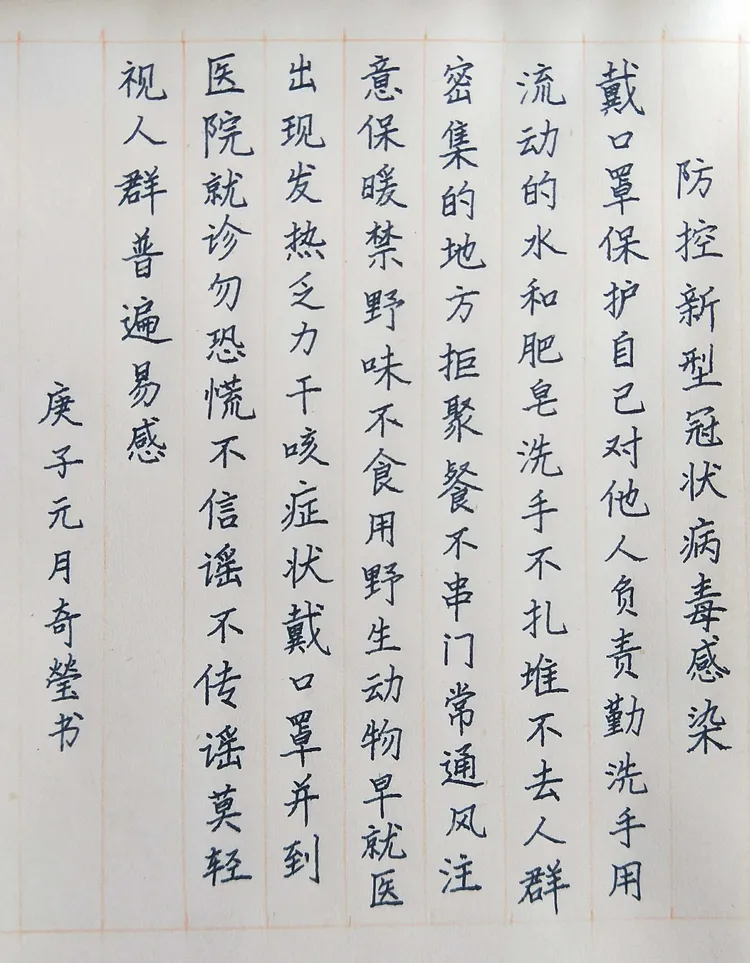 防控新型冠状病毒感染
戴口罩保护自己对他人负责勤洗手用
流动的水和肥皂洗手不扎堆不去人群
密集的地方拒聚餐不串门常通风注
意保暖禁野味不食用野生动物早就医
出现发热乏力干咳症状戴口罩并到
医院就诊勿恐慌不信谣不传谣莫轻
视人群普遍易感
庚子元月奇莹书